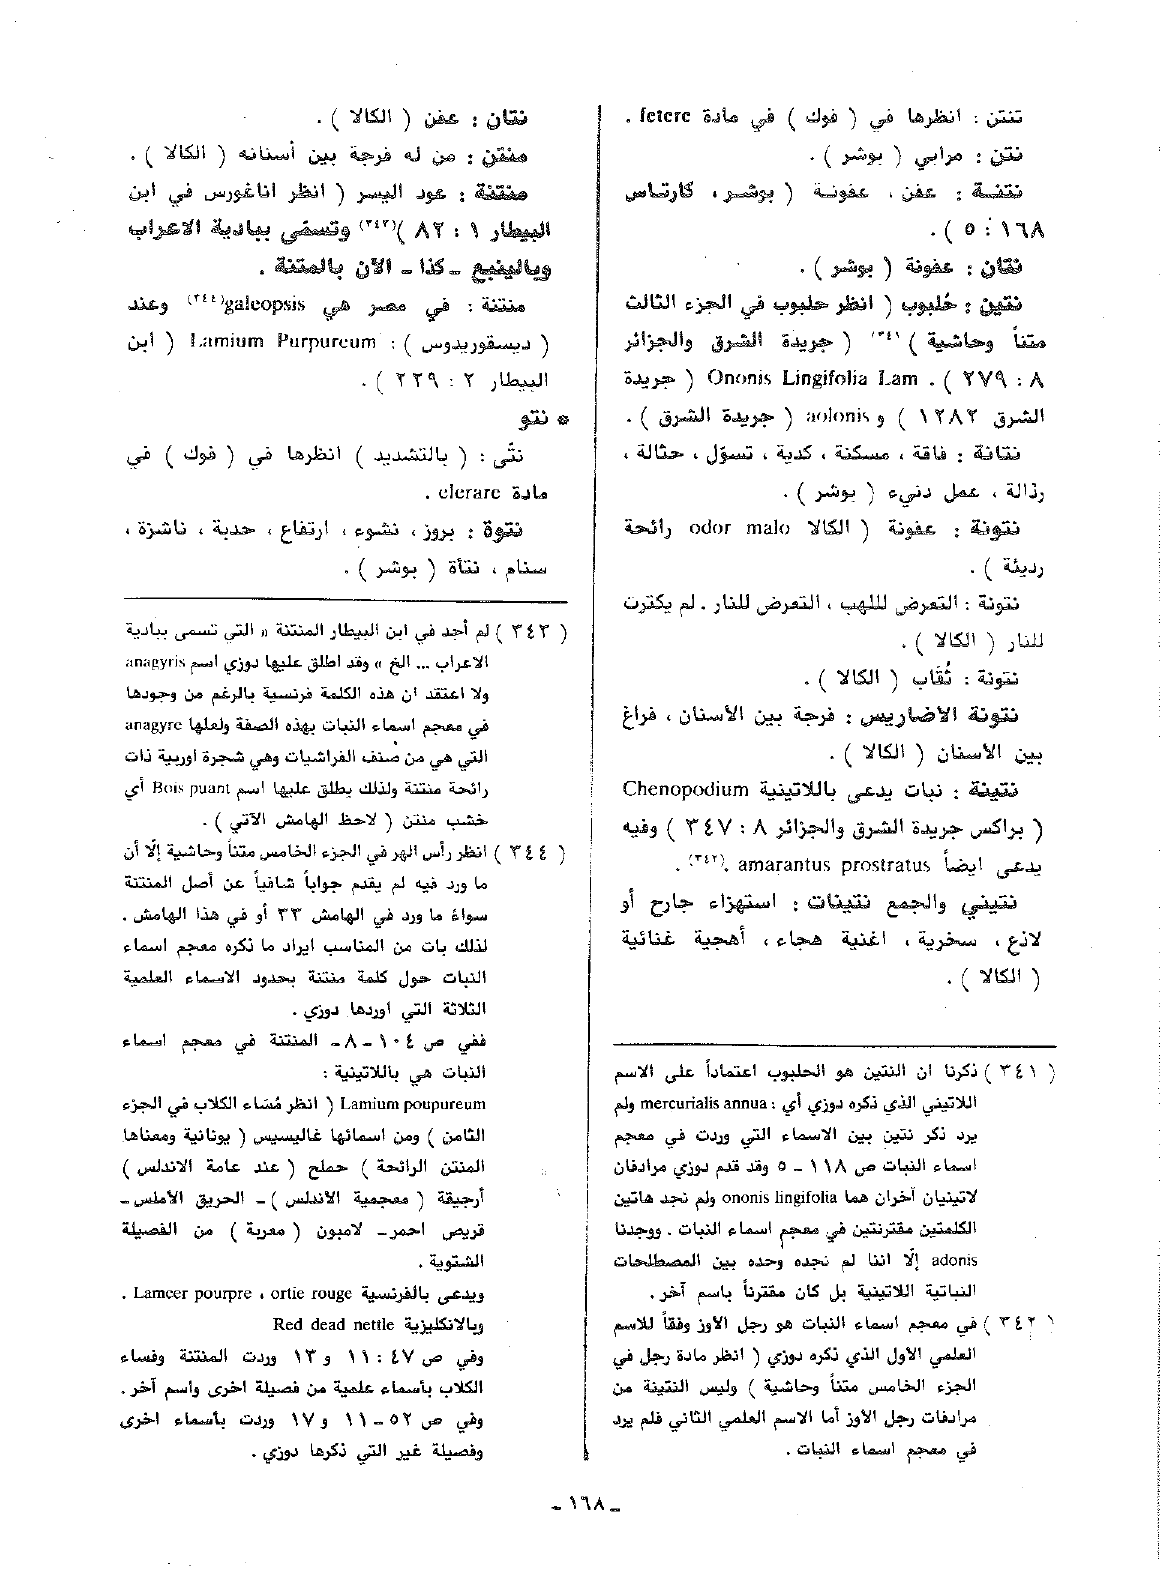 تنتن : انظرها في ( فوك ) في مادة fetere .
نتن : مرابي ( بوشر ) .
نتنة : عفن ، عفونة ( بوشر ، كارتاس
١٦٨ : ٥ ) .
نتان : عفونة ( بوشر ) .
نتين : حُلبوب ( انظر حلبوب في الجزء الثالث
متناً وحاشية )(٣٤١) ( جريدة الشرق والجزائر
٨ : ٢٧٩ ) . Ononis Lingifolia Lam ( جريدة
الشرق ١٢٨٢ ) و aolonis ( جريدة الشرق ) .
نتانة : فاقة ، مسكنة ، كدية ، تسوّل ، حثالة ،
رذالة ، عمل دنيء ( بوشر ) .
نتونة : عفونة ( الكالا odor malo رائحة
رديئة ) .
نتونة : التعرض لللهب ، التعرض للنار . لم يكترث
للنار ( الكالا ) .
نتونة : ثُقَاب ( الكالا ) .
نتونة الأضاريس : فرجة بين الأسنان ، فراغ
بين الأسنان ( الكالا ) .
نتينة : نبات يدعى باللاتينية Chenopodium
( براكس جريدة الشرق والجزائر ٨ : ٣٤٧ ) وفيه
يدعى ايضاً amarantus prostratus .(٣٤٢) .
نتيني والجمع نتينات : استهزاء جارح أو
لاذع ، سخرية ، اغنية هجاء ، أهجية غنائية
( الكالا ) .
( ٣٤١ ) ذكرنا ان النتين هو الحلبوب اعتماداً على الاسم
اللاتيني الذي ذكره دوزي أي : mercurialis annua ولم
يرد ذكر نتين بين الاسماء التي وردت في معجم
اسماء النبات ص ١١٨ - ٥ وقد قدم دوزي مرادفان
لاتينيان آخران هما ononis lingifolia ولم نجد هاتين
الكلمتين مقترنتين في معجم اسماء النبات . ووجدنا
adonis إلّا اننا لم نجده وحده بين المصطلحات
النباتية اللاتينية بل كان مقترناً باسم آخر .
( ٣٤٢ ) في معجم اسماء النبات هو رجل الأوز وفقاً للاسم
العلمي الأول الذي ذكره دوزي ( انظر مادة رجل في
الجزء الخامس متناً وحاشية ) وليس النتينة من
مرادفات رجل الأوز أما الاسم العلمي الثاني فلم يرد
في معجم اسماء النبات .
نتان : عفن ( الكالا ) .
منتن : من له فرجة بين أسنانه ( الكالا ) .
منتنة : عود اليسر ( انظر اناغورس في ابن
البيطار ١ : ٨٢ )(٣٤٣) وتسمّى ببادية الاعراب
وبالينبع - كذا - الآن بالمتنة .
منتنة : في مصر هي galeopsis(٣٤٤) وعند
( ديسقوريدوس ) : Lamium Purpureum ( ابن
البيطار ٢ : ٢٢٩ ) .
* نتو
نتّى : ( بالتشديد ) انظرها في ( فوك ) في
مادة elerare .
نتوة : بروز ، نشوء ، ارتفاع ، حدبة ، ناشزة ،
سنام ، نتأة ( بوشر ) .
( ٣٤٣ ) لم أجد في ابن البيطار المنتنة « التي تسمى ببادية
الاعراب ... الخ » وقد اطلق عليها دوزي اسم anagyris
ولا اعتقد ان هذه الكلمة فرنسية بالرغم من وجودها
في معجم اسماء النبات بهذه الصفة ولعلها anagyre
التي هي من صنف الفراشيات وهي شجرة اوربية ذات
رائحة منتنة ولذلك يطلق عليها اسم Bois puant أي
خشب منتن ( لاحظ الهامش الآتي ) .
( ٣٤٤ ) انظر رأس الهر في الجزء الخامس متناً وحاشية إلّا أن
ما ورد فيه لم يقدم جواباً شافياً عن أصل المنتنة
سواءً ما ورد في الهامش ٣٣ أو في هذا الهامش .
لذلك بات من المناسب ايراد ما ذكره معجم اسماء
النبات حول كلمة منتنة بحدود الاسماء العلمية
الثلاثة التي اوردها دوزي .
ففي ص ١٠٤ - ٨ - المنتنة في معجم اسماء
النبات هي باللاتينية :
Lamium poupureum ( انظر مُسَاء الكلاب في الجزء
الثامن ) ومن اسمائها غاليسيس ( يونانية ومعناها
المنتن الرائحة ) حملج ( عند عامة الاندلس )
أرجيقة ( معجمية الأندلس ) - الحريق الأملس -
قريص احمر - لاميون ( معربة ) من الفصيلة
الشتوية .
ويدعى بالفرنسية Lamcer pourpre ، ortie rouge .
وبالانكليزية Red dead nettle
وفي ص ٤٧ : ١١ و ١٣ وردت المنتنة وفساء
الكلاب بأسماء علمية من فصيلة اخرى واسم آخر .
وفي ص ٥٢ - ١١ و ١٧ وردت بأسماء اخرى
وفصيلة غير التي ذكرها دوزي .
- ١٦٨ -